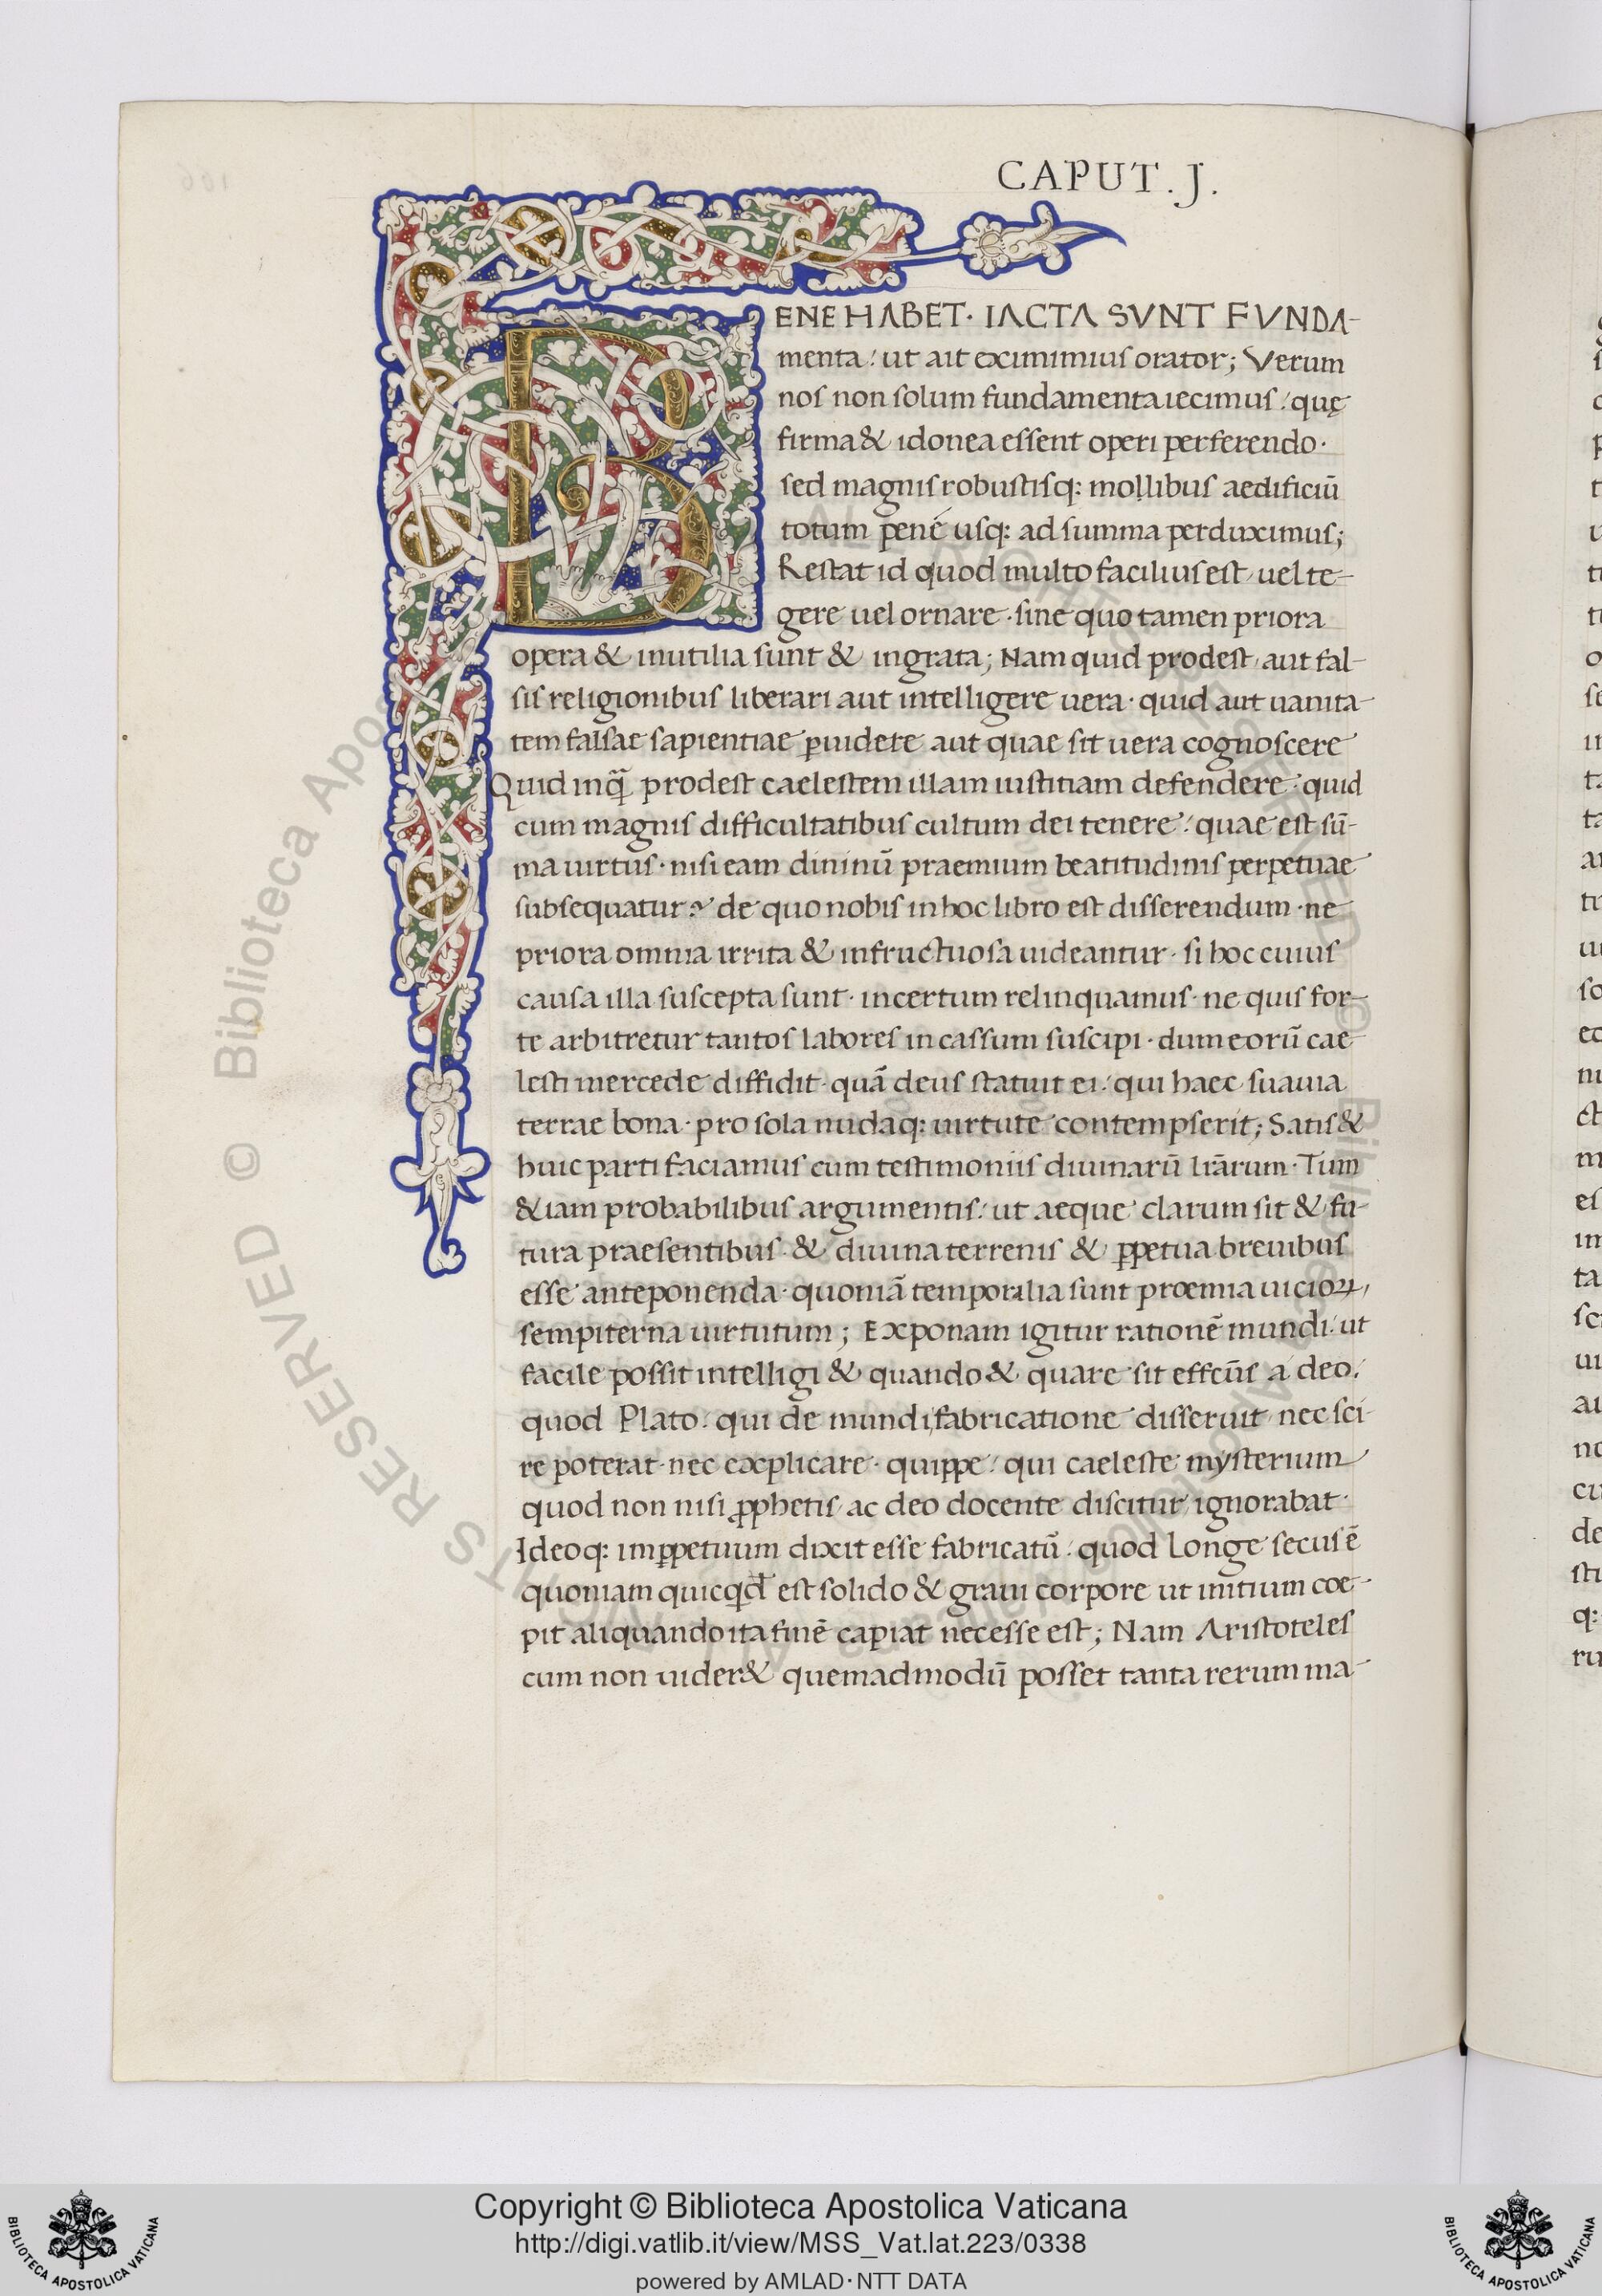 CAPUT. J.
BENE HABET· IACTA SVNT FVNDA-
menta: ut ait eximimius orator; Verum
nos non solum fundamenta iecimus: quę
firma & idonea essent operi perferendo·
sed magnis robustisq: mollibus aedificiū
totum pené usq: ad summa perduximus;
Restat id quod multo facilius est, uel te-
gere uel ornare· sine quo tamen priora
opera & inutilia sunt & ingrata; Nam quid prodest, aut fal-
sis religionibus liberari aut intelligere uera· quid aut uanita-
tem falsae sapientiae ꝑuidere aut quae sit uera cognoscere
Quid inq̄ prodest caelestem illam iustitiam defendere· quid
cum magnis difficultatibus cultum dei tenere: quae est sū-
ma uirtus· nisi eam diuinū praemium beatitudinis perpetuae
subsequatur? de quo nobis in hoc libro est disserendum· ne
priora omnia irrita & infructuosa uideantur· si hoc cuius
causa illa suscepta sunt· incertum relinquamus· ne quis for-
te arbitretur tantos labores in cassum suscipi· dum eorū cae-
lesti mercede diffidit· quā deus statuit ei: qui haec suauia
terrae bona· pro sola nudaq: uirtute contempserit; Satis &
huic parti faciamus cum testimoniis diuinarū lr̄arum· Tum
&iam probabilibus argumentis: ut aeque clarum sit & fu-
tura praesentibus· & diuina terrenis & ꝑpetua breuibus
esse anteponenda· quoniā temporalia sunt proemia uicioꝝ,
sempiterna uirtutum; Exponam igitur rationē mundi: ut
facile possit intelligi & quando & quare sit effec̄us a deo:
quod Plato: qui de mundi fabricatione disseruit, nec sci-
re poterat· nec explicare· quippe: qui caeleste mysterium
quod non nisi ꝓphetis, ac deo docente discitur, ignorabat·
Ideoq: imꝑpetuum dixit esse fabricatū: quod longe secus ē
quoniam quicqd̄ est solido & graui corpore ut initium coe-
pit aliquando ita finē capiat necesse est; Nam Aristoteles
cum non uider& quemadmodū posset tanta rerum ma-
Copyright © Biblioteca Apostolica Vaticana
http://digi.vatlib.it/view/MSS_Vat.lat.223/0338
powered by AMLAD·NTT DATA
BIBLIOTECA APOSTOLICA VATICANA
BIBLIOTECA APOSTOLICA VATICANA